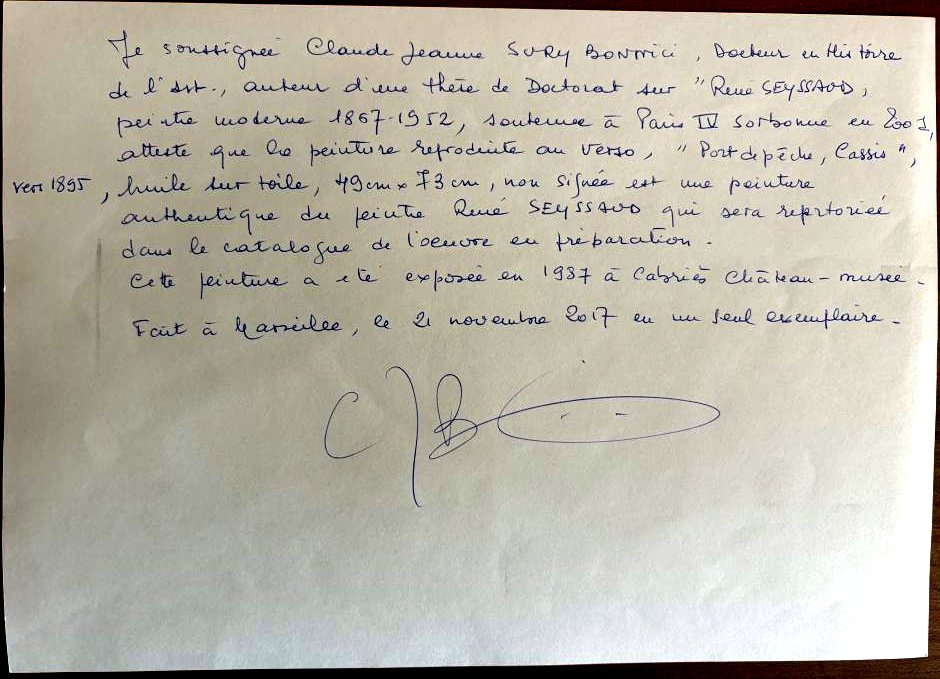 Je soussignée Claude Jeanne SURY BONNICI, Docteur en Histoire
de l'Art., auteur d'une thèse de Doctorat sur "René SEYSSAUD,
peintre moderne 1867-1952, soutenue à Paris IV Sorbonne en 2001,
atteste que la peinture reproduite au verso, "Port de pêche, Cassis",
vers 1895, huile sur toile, 49cm x 73cm, non signée est une peinture
authentique du peintre René SEYSSAUD qui sera repertoriée
dans le catalogue de l'oeuvre en préparation.
Cette peinture a été exposée en 1987 à Cabriès Château-musée.
Fait à Marseille, le 21 novembre 2017 en un seul exemplaire.